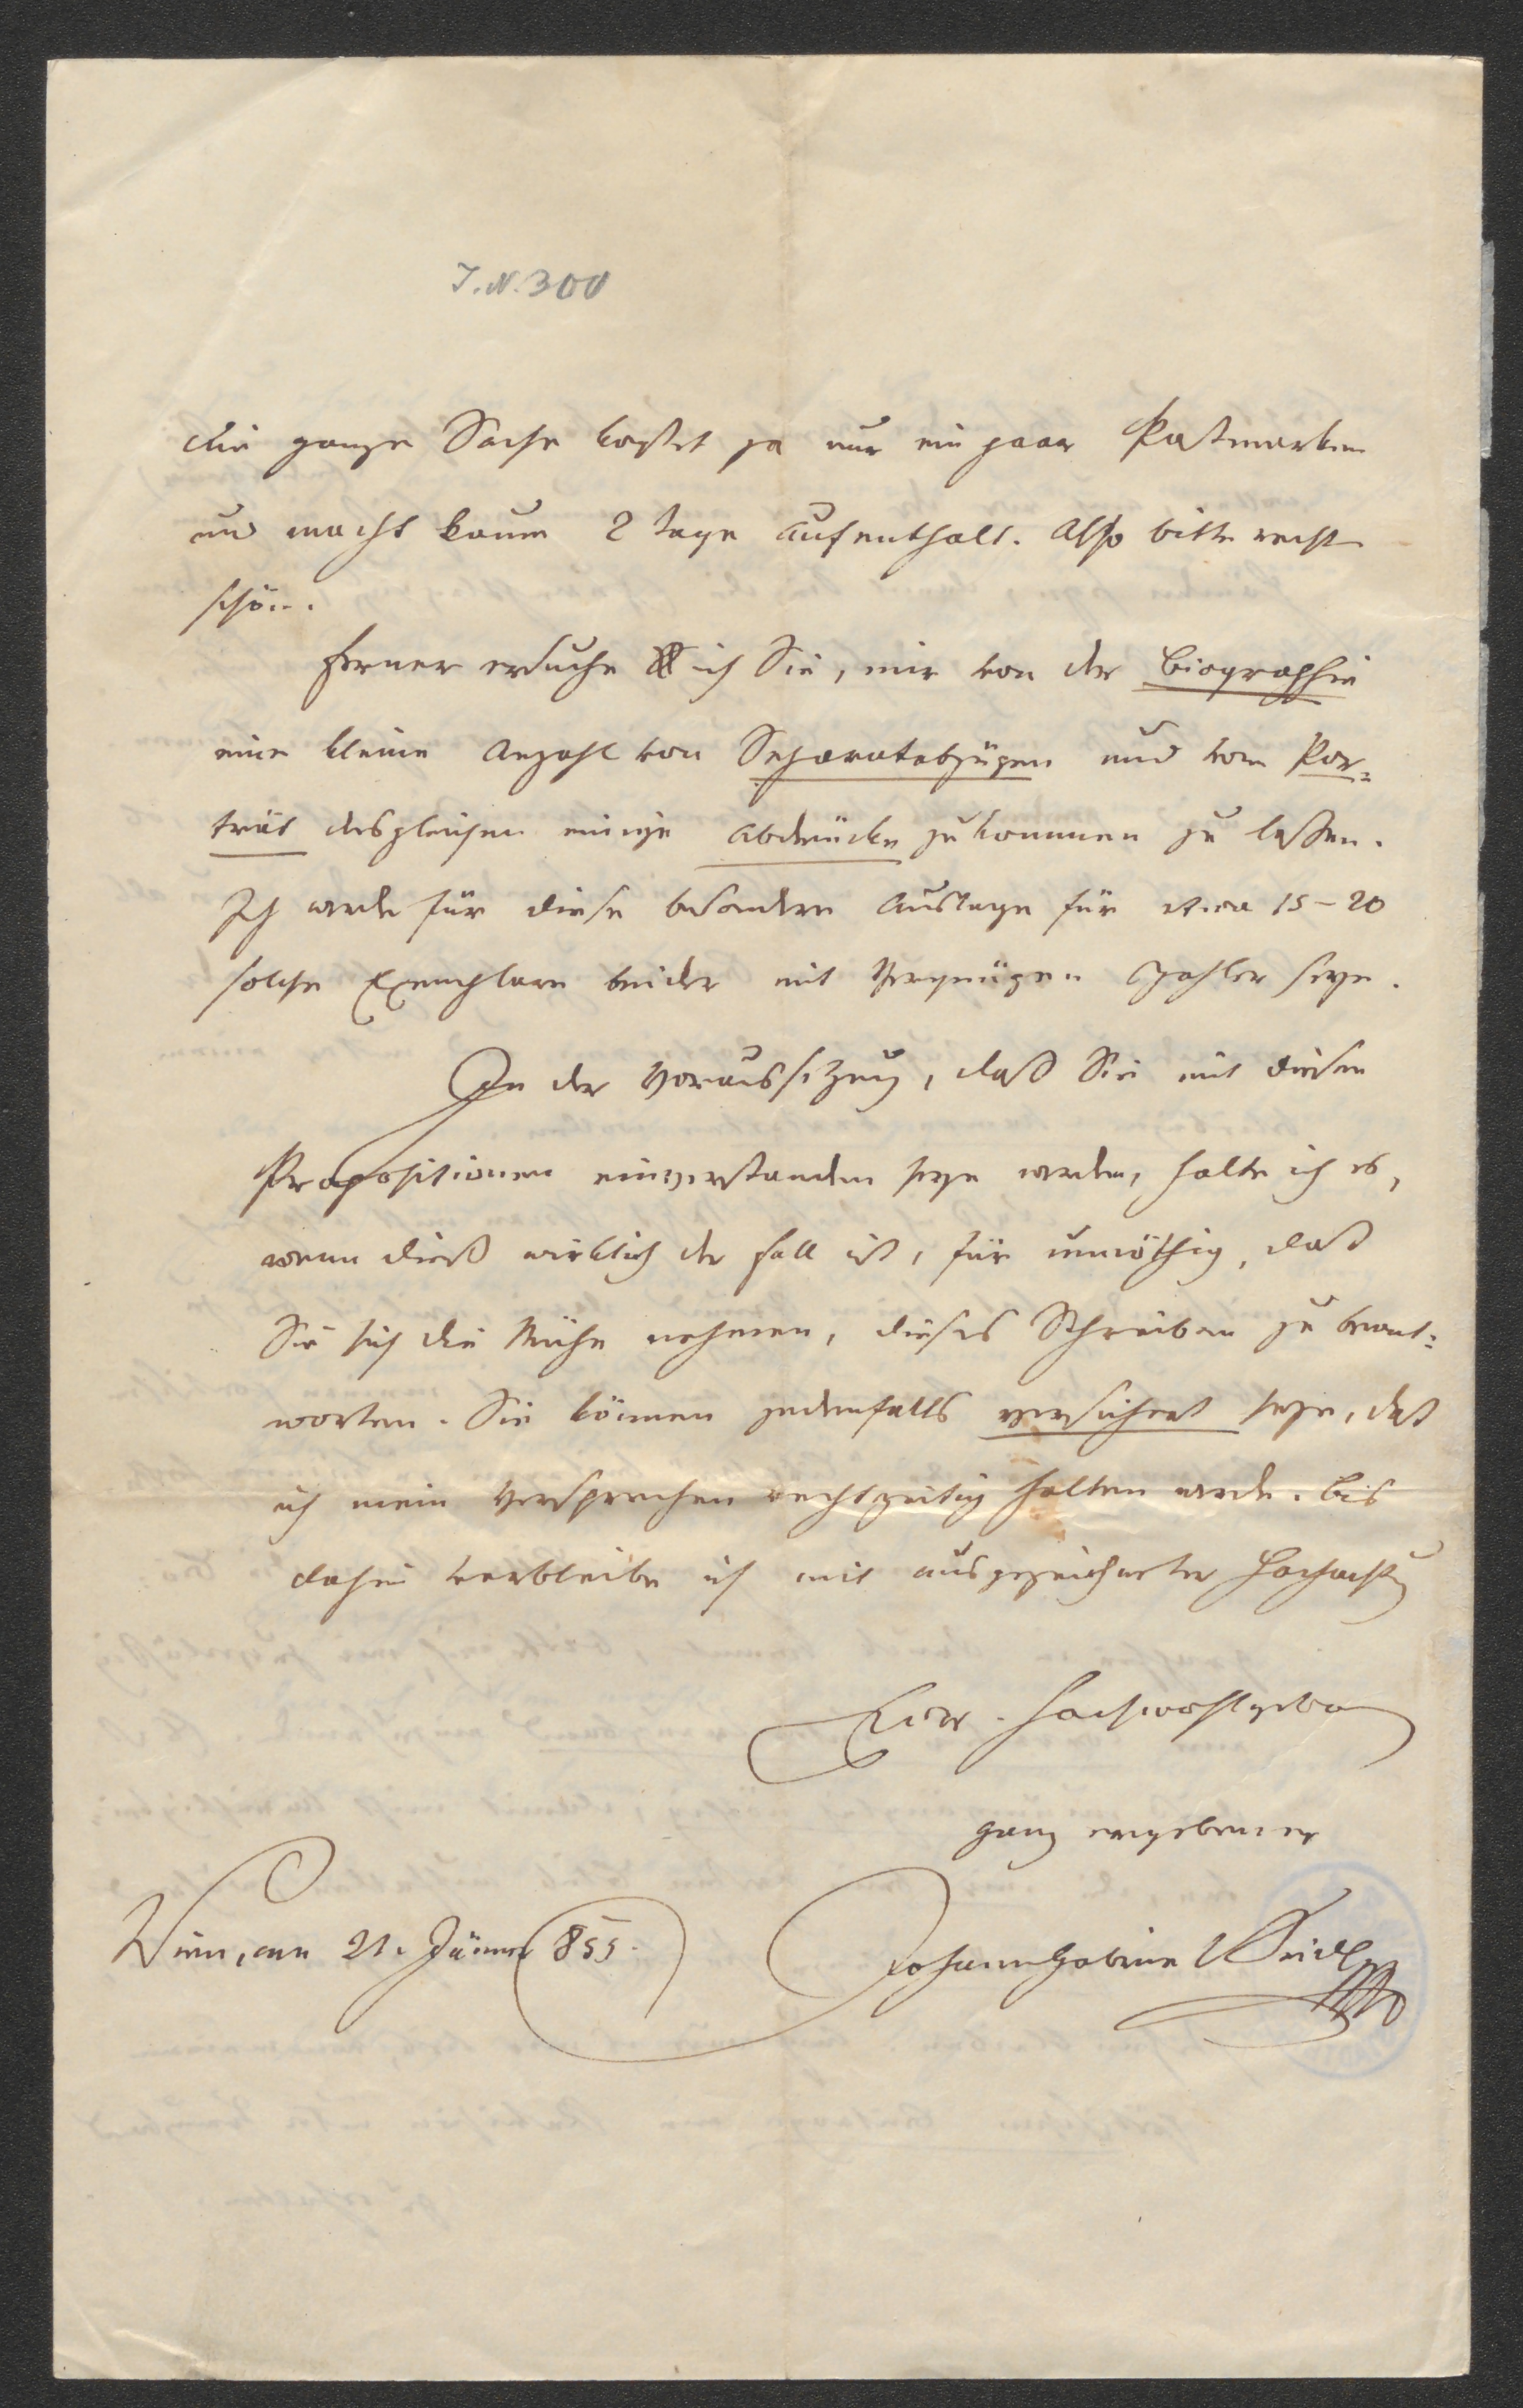 I. N. 300
die ganze Sache kostet ja nur ein paar Postmarken
und macht kaum 2 Tage Aufenthalt. Also bitte recht
schön.
Ferner ersuche ich Sie, mir von der Biographie
eine kleine Anzahl von Separatabzügen und vom Por=
trät desgleichen einige Abdrücke zukommen zu lassen.
Ich werde für diese besondere Auslage für etwa 15–20
solche Exemplare beider mit Vergnügen Zahler seyn.
In der Voraussetzung, daß Sie mit diesen
Propositionen einverstanden seyn werden, halte ich es,
wenn dieß wirklich der Fall ist, für unnöthig, daß
Sie sich die Mühe nehmen, dieses Schreiben zu beant=
worten. Sie können jedenfalls versichert seyn, daß
ich mein Versprechen rechtzeitig halten werde. Bis
dahin verbleibe ich mit ausgezeichneter Hochachtung
Euer Hochwohlgeboren
ganz ergebener
Wien, am 21. Jänner 855.
Johann Gabriel Seidl